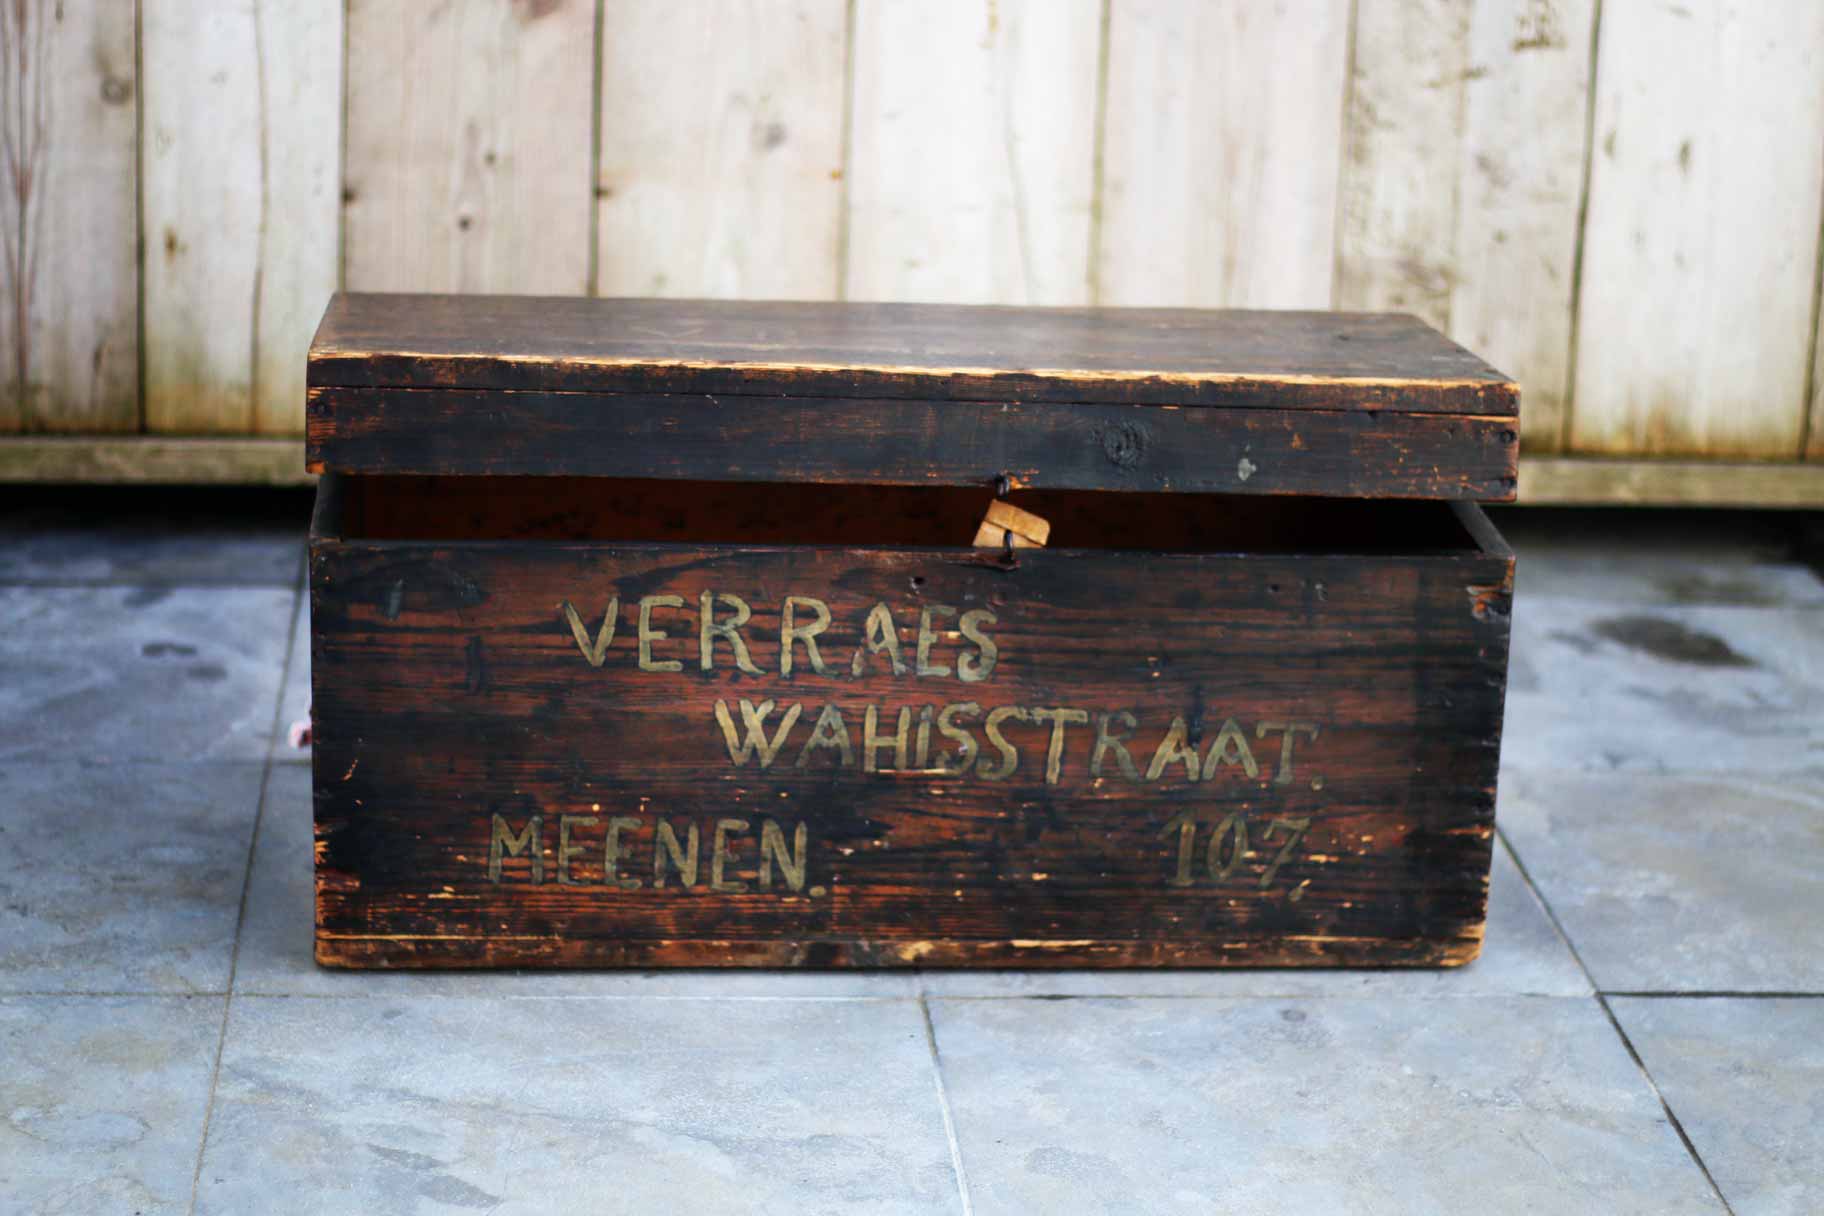 VERRAES
WAHISSTRAAT.
MEENEN. 107,